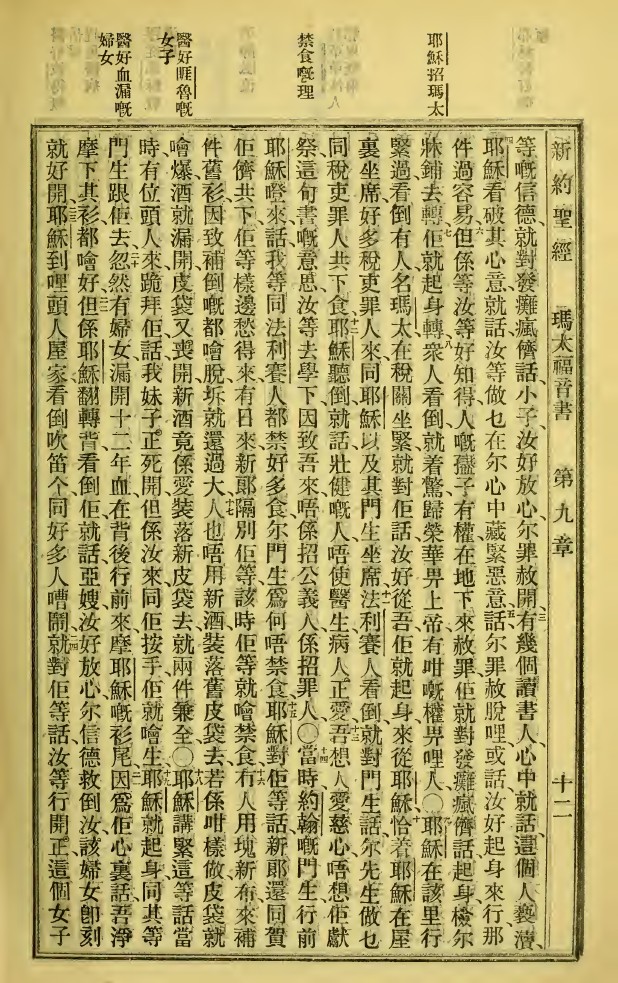 耶穌招瑪太
禁食嘅理
醫好睚魯嘅
女子
醫好血漏嘅
婦女
新約聖經 瑪太福音書 第九章 十二
等嘅信德、就對發癱瘋儕話、小子、汝好放心、尔罪赦開、三有幾個讀書人、心中就話、這個人褻瀆、
四耶穌看破其心意、就話、汝等做乜在尔心中藏緊惡意、五話尔罪赦脫哩、或話汝好起身來行、那
件過容易、六但係等汝等好知得人嘅孻子有權在地下來赦罪、佢就對發癱瘋儕話、起身、檢尔
牀鋪去轉、七佢就起身轉、八衆人看倒、就着驚、歸榮華畀上帝、有咁嘅權畀哩人、〇九耶穌在該里行
緊過、看倒有人名瑪太、在稅關坐緊、就對佢話、汝好從吾、佢就起身來從耶穌、十恰着耶穌在屋
裏坐席、好多稅吏罪人來、同耶穌以及其門生坐席、十一法利賽人看倒、就對門生話、尔先生做乜
同稅吏罪人共下食、十二耶穌聽倒就話、壯健嘅人唔使醫生、病人正愛、十三吾想人愛慈心、唔想佢獻
祭、這句書嘅意思、汝等去學下、因致吾來、唔係招公義人、係招罪人、〇十四當時約翰嘅門生、行前
耶穌嗰來話、我等同法利賽人都禁好多食、尔門生爲何唔禁食、十五耶穌對佢等話、新郞還同賀
佢儕共下、佢等樣邊愁得來、有日來、新郞隔別佢等、該時佢等就噲禁食、十六有人用塊新布來補
件舊衫、因致補倒嘅都噲脫坼、就還過大、十七人也唔用新酒裝落舊皮袋去、若係咁樣做、皮袋就
噲爆、酒就漏開、皮袋又喪開、新酒竟係愛裝落新皮袋去、就兩件兼全、〇十八耶穌講緊這等話、當
時有位頭人來跪拜佢、話、我妹子正死開、但係汝來同佢按手、佢就噲生、十九耶穌就起身、同其等
門生跟佢去、二十忽然有婦女漏開十二年血、在背後行前來、摩耶穌嘅衫尾、二一因爲佢心裏話、吾淨
摩下其衫、都噲好、二二但係耶穌翻轉背看倒佢、就話、亞嫂、汝好放心、尔信德救倒汝、該婦女卽刻
就好開、二三耶穌到哩頭人屋家、看倒吹笛个、同好多人嘈鬧、二四就對佢等話、汝等行開、正這個女子